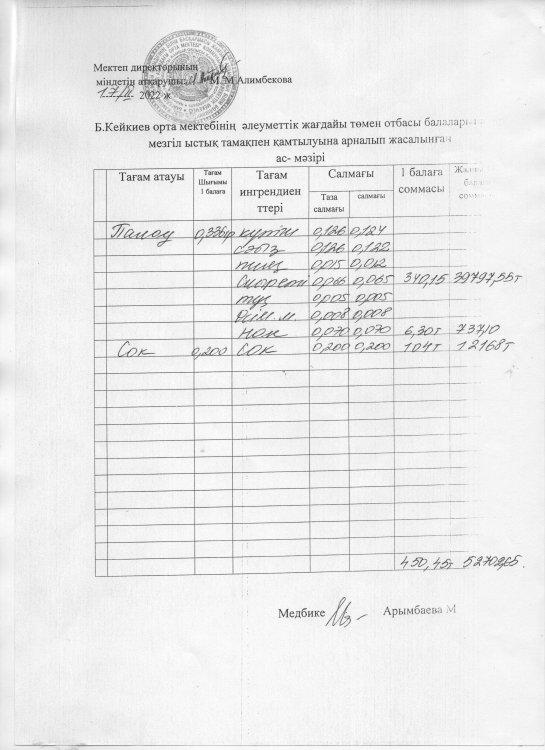 Мектеп директорының
міндетін атқарушы: М.М Алимбекова
2022 ж
Б.Кейкиев орта мектебінің әлеуметтік жағдайы төмен отбасы балалары
мезгіл ыстық тамақпен қамтылуына арналып жасалынған
ас- мәзірі
Тағам атауы Тағам Шығымы 1 балаға Тағам ингрендиенттері Салмағы 1 балаға соммасы
Таза салмағы салмағы
Палау күріш 0,126 0,124
сәбіз 0,126 0,122
пияз 0,015 0,012
0,066 0,065 340,15 39797,55т
тұз 0,005 0,005
Өсім.м. 0,008 0,008
нан 0,070 0,070 6,30т 737,10
Сок 0,200 Сок 0,200 0,200 104т 12168т
450,45т 52702,65.
Медбике Арымбаева М